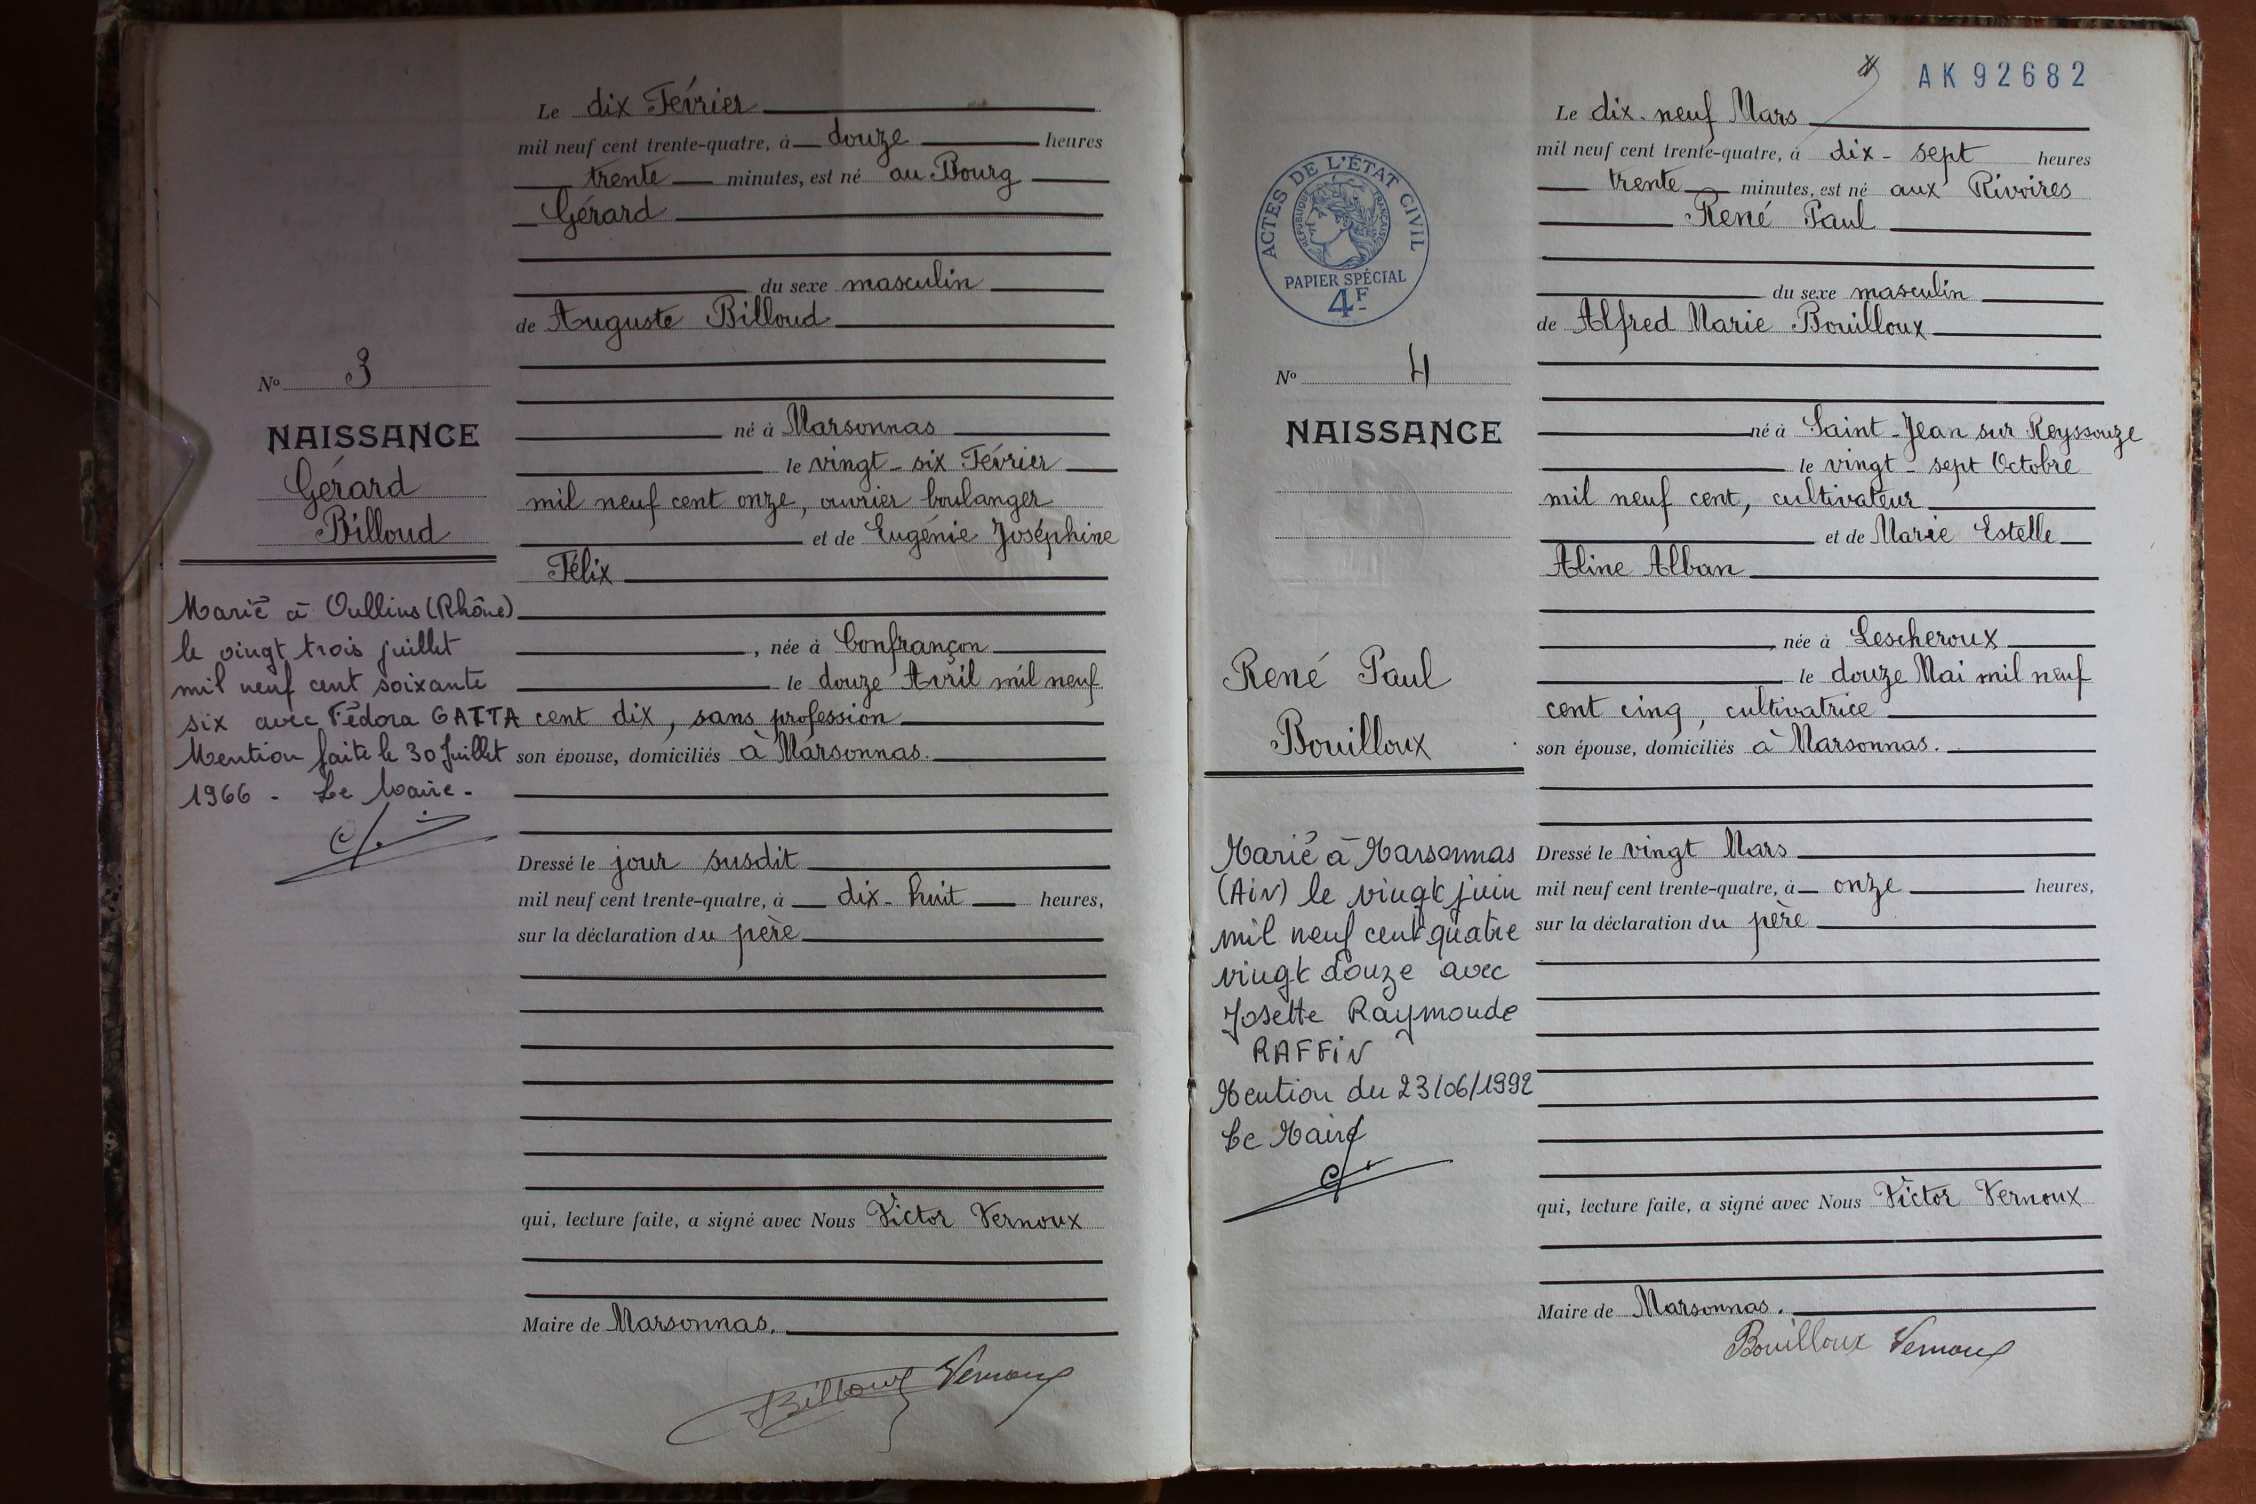 Le dix Février
mil neuf cent trente-quatre, à douze heures
trente minutes, est né au Bourg
Gérard
du sexe masculin
de Auguste Billoud
né à Marsonnas
le vingt-six Février
mil neuf cent onze, ouvrier boulanger
et de Eugénie Joséphine
Félix
, née à Confrançon
le douze Avril mil neuf
cent dix, sans profession
son épouse, domiciliés à Marsonnas.
Dressé le jour susdit
mil neuf cent trente-quatre, à dix-huit heures,
sur la déclaration du père
qui, lecture faite, a signé avec Nous Victor Vernoux
Maire de Marsonnas.
Billoud Vernoux
No 3
NAISSANCE
Gérard
Billoud
Marié à Oullins (Rhône)
le vingt trois juillet
mil neuf cent soixante
six avec Fédora GATTA
Mention faite le 30 Juillet
1966 - Le Maire -
AK 92682
ACTES DE L'ÉTAT CIVIL
RÉPUBLIQUE FRANÇAISE
PAPIER SPÉCIAL
4F
No 4
NAISSANCE
René Paul
Bouilloux
Marié à Marsonnas
(Ain) le vingt juin
mil neuf cent quatre
vingt douze avec
Josette Raymonde
RAFFIN
Mention du 23/06/1992
Le Maire
Le dix-neuf Mars
mil neuf cent trente-quatre, à dix-sept heures
trente minutes, est né aux Rivoires
René Paul
du sexe masculin
de Alfred Marie Bouilloux
né à Saint-Jean sur Reyssouze
le vingt-sept Octobre
mil neuf cent, cultivateur
et de Marie Estelle
Aline Alban
, née à Lescheroux
le douze Mai mil neuf
cent cinq, cultivatrice
son épouse, domiciliés à Marsonnas.
Dressé le vingt Mars
mil neuf cent trente-quatre, à onze heures,
sur la déclaration du père
qui, lecture faite, a signé avec Nous Victor Vernoux
Maire de Marsonnas.
Bouilloux Vernoux